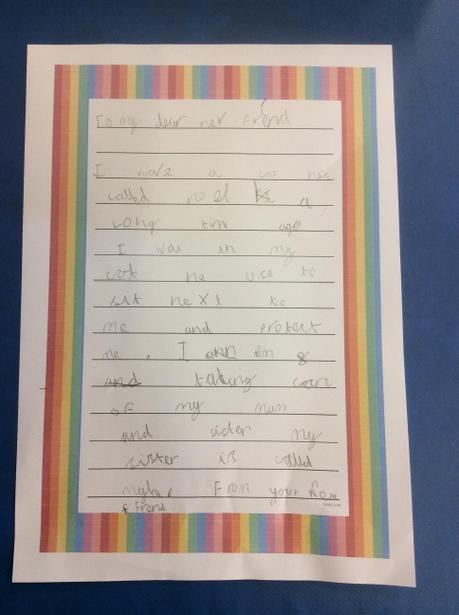 To my dear net Frend
I have a cat hes
called noel a
Long tim ago
I was in my
cot he use to
sit next to
me and protect
me. I am 8
and taking care
of my mum
and sider my
sister is called
From your
Frend.